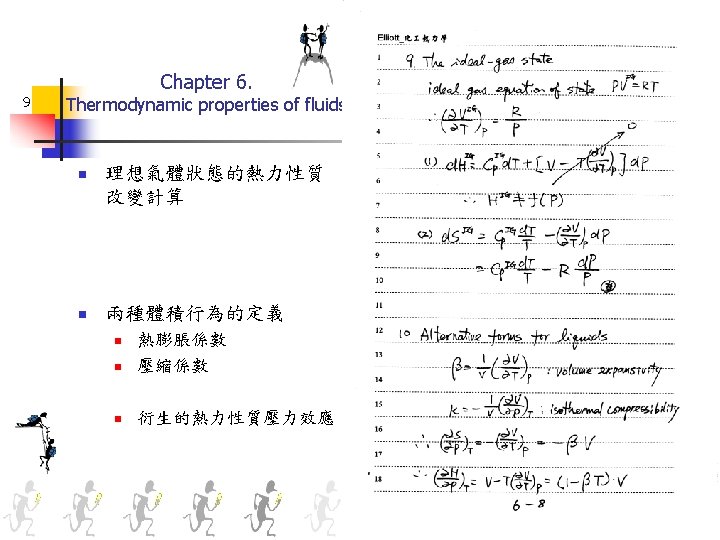 9
Chapter 6.
Thermodynamic properties of fluids
理想氣體狀態的熱力性質
改變計算
兩種體積行為的定義
熱膨脹係數
壓縮係數
衍生的熱力性質壓力效應
Elliott_化工熱力學
1 9. The ideal-gas state
2 ideal gas equation of state PV^IG = RT
3 ∴ (∂V^IG/∂T)_P = R/P
4
5 (1) dH^IG = Cp^IG dT + [V - T(∂V/∂T)_P] dP 0
6
7 ∴ H^IG ≠ f(P)
8 (2) dS^IG = Cp^IG dT/T - (∂V/∂T)_P dP
9
10 = Cp^IG dT/T - R dP/P
11
12 10. Alternative forms for liquids
13 β = 1/V (∂V/∂T)_P : volume expansivity
14
15 κ = -1/V (∂V/∂P)_T : isothermal compressibility
16 ∴ (∂S/∂P)_T = -(∂V/∂T)_P = -βV
17
18 (∂H/∂P)_T = V - T(∂V/∂T)_P = (1-βT)·V
6-8